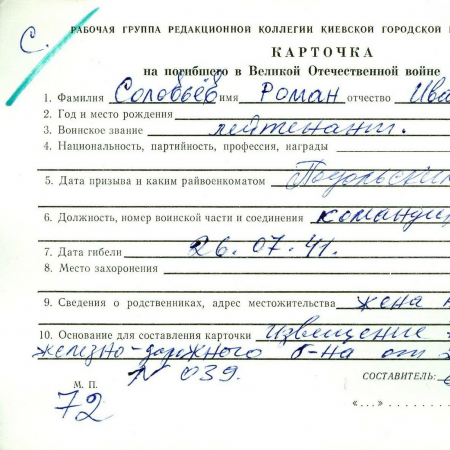 С.
РАБОЧАЯ ГРУППА РЕДАКЦИОННОЙ КОЛЛЕГИИ КИЕВСКОЙ ГОРОДСКОЙ
КАРТОЧКА
на погибшего в Великой Отечественной войне
1. Фамилия Соловьёв имя Роман отчество Ива
2. Год и место рождения
3. Воинское звание лейтенант.
4. Национальность, партийность, профессия, награды
5. Дата призыва и каким райвоенкоматом Подольским
6. Должность, номер воинской части и соединения команди
7. Дата гибели 26.07.41.
8. Место захоронения
9. Сведения о родственниках, адрес местожительства жена
10. Основание для составления карточки Извещение
железно-дорожного б-на от 2
N 039.
М. П.
СОСТАВИТЕЛЬ:
72
„...“